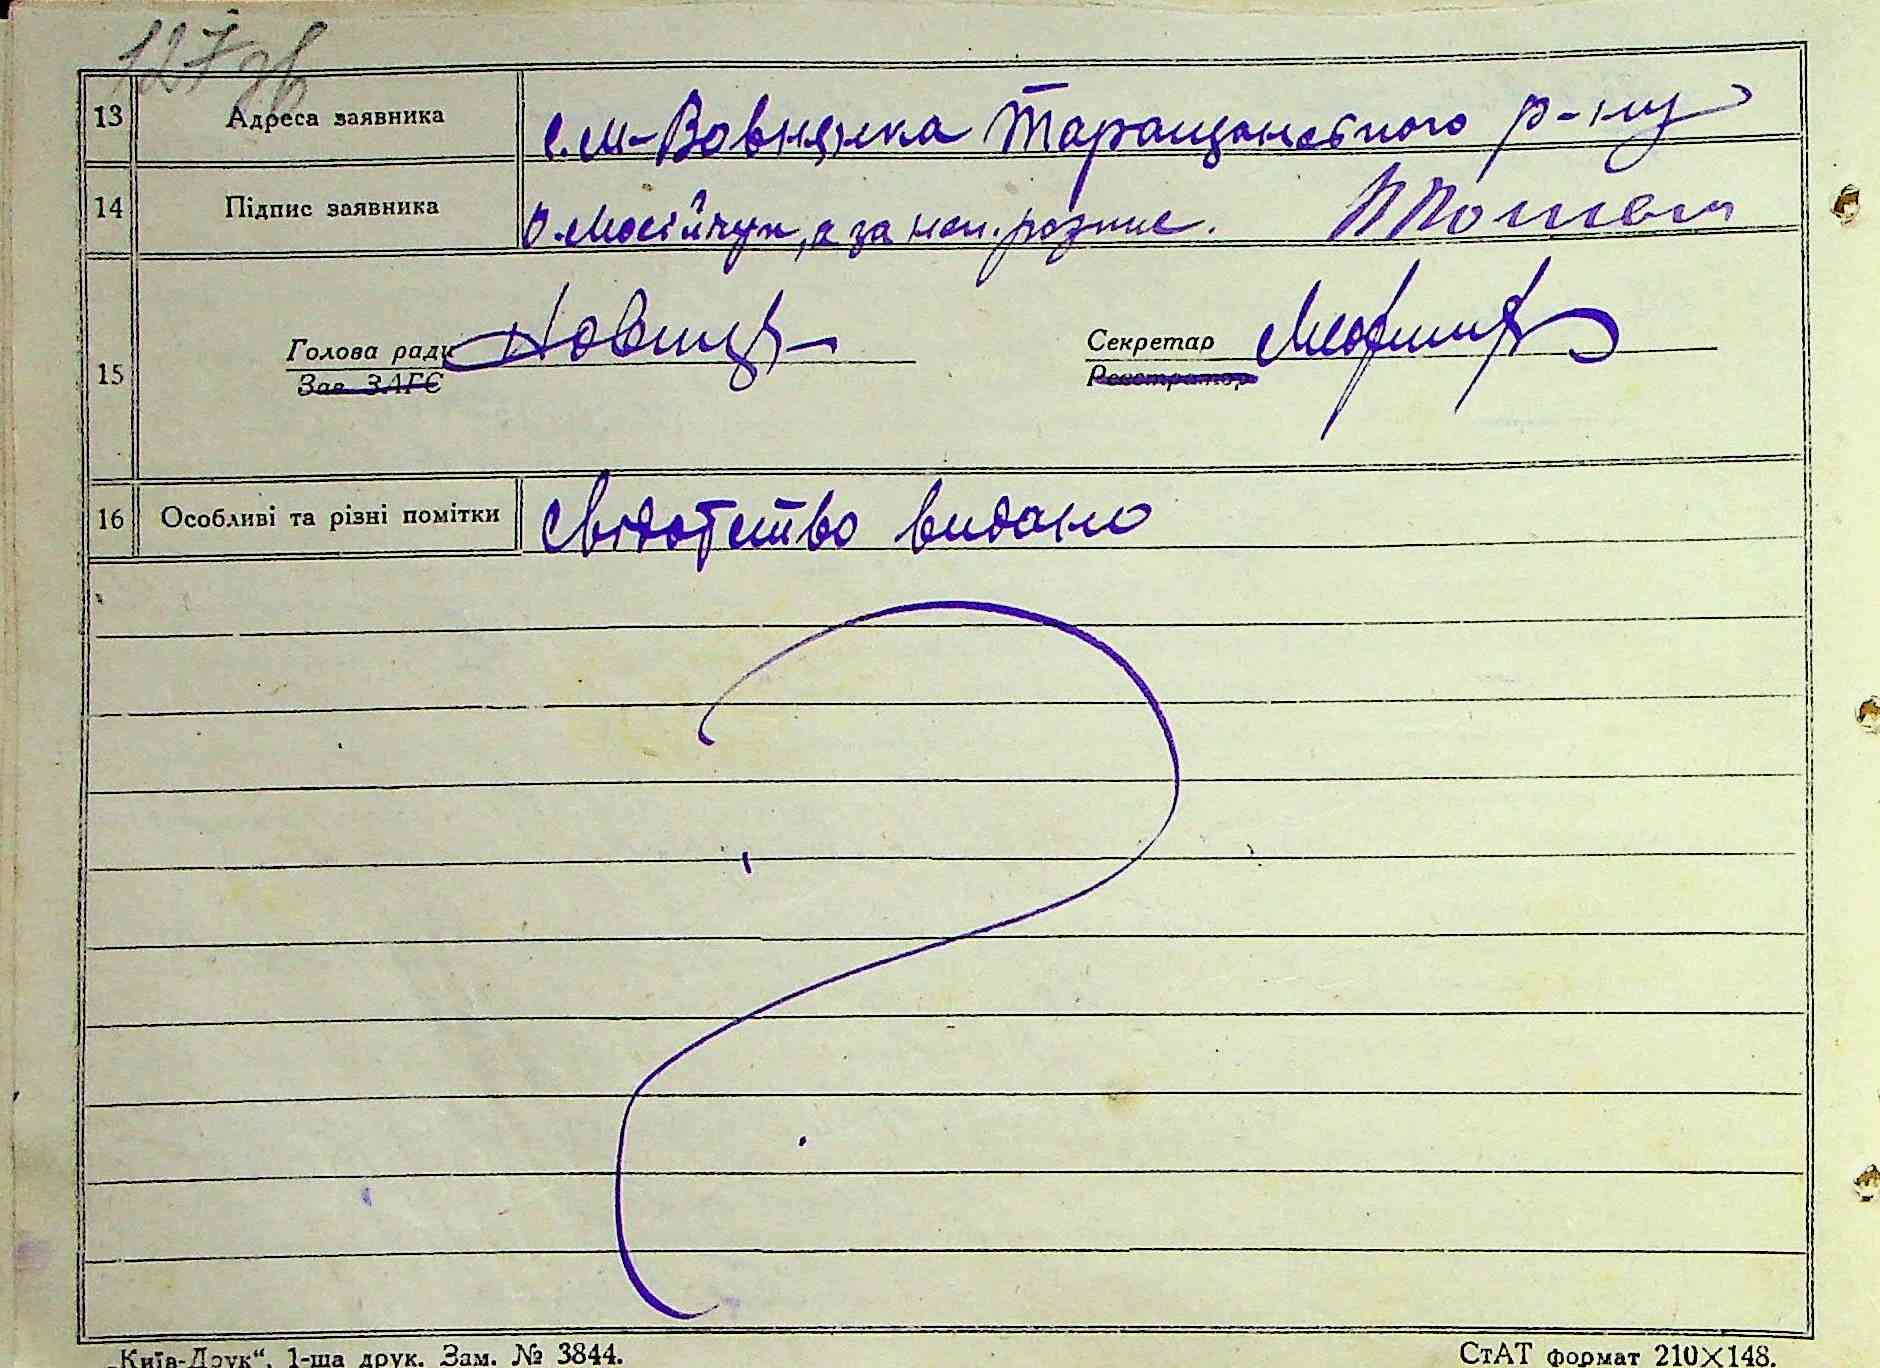 127 зв
13 Адреса заявника с. М-Вовнянка Таращанского р-ну
14 Підпис заявника О. Мосійчук, а за неп. розпис.
15 Голова ради Новиц
Секретар
Зав. ЗАГС
Реєстратор
16 Особливі та різні помітки Свідотство видано
„Київ-Друк“. 1-ша друк. Зам. № 3844.
СтАТ формат 210×148.